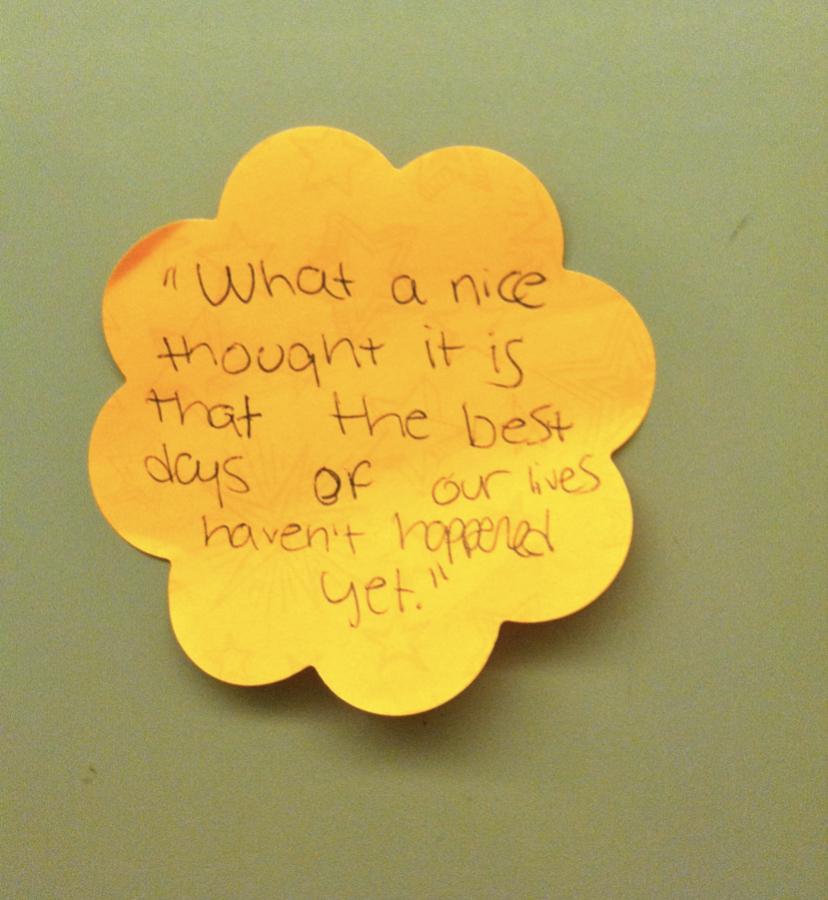 "What a nice
thought it is
that the best
days of our lives
haven't happened
yet."